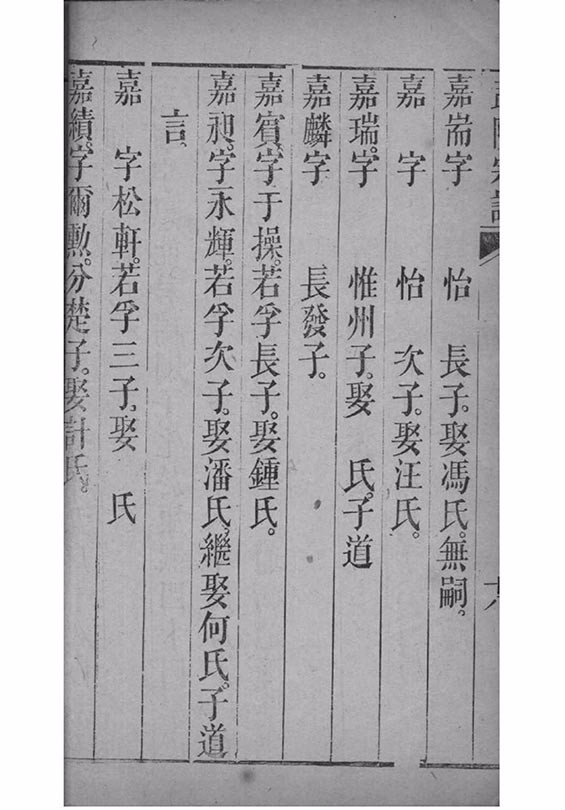 嘉耑字　怡　長子。娶馮氏。無嗣。
嘉　字　怡　次子。娶汪氏。
嘉瑞。字　惟州子。娶　氏。子道
嘉麟字　長發子。
嘉賓。字于操。若孚長子。娶鍾氏。
嘉昶。字永輝。若孚次子。娶潘氏。繼娶何氏。子道
言。
嘉　字松軒。若孚三子。娶　氏
嘉績。字爾勳。分楚子。娶計氏。